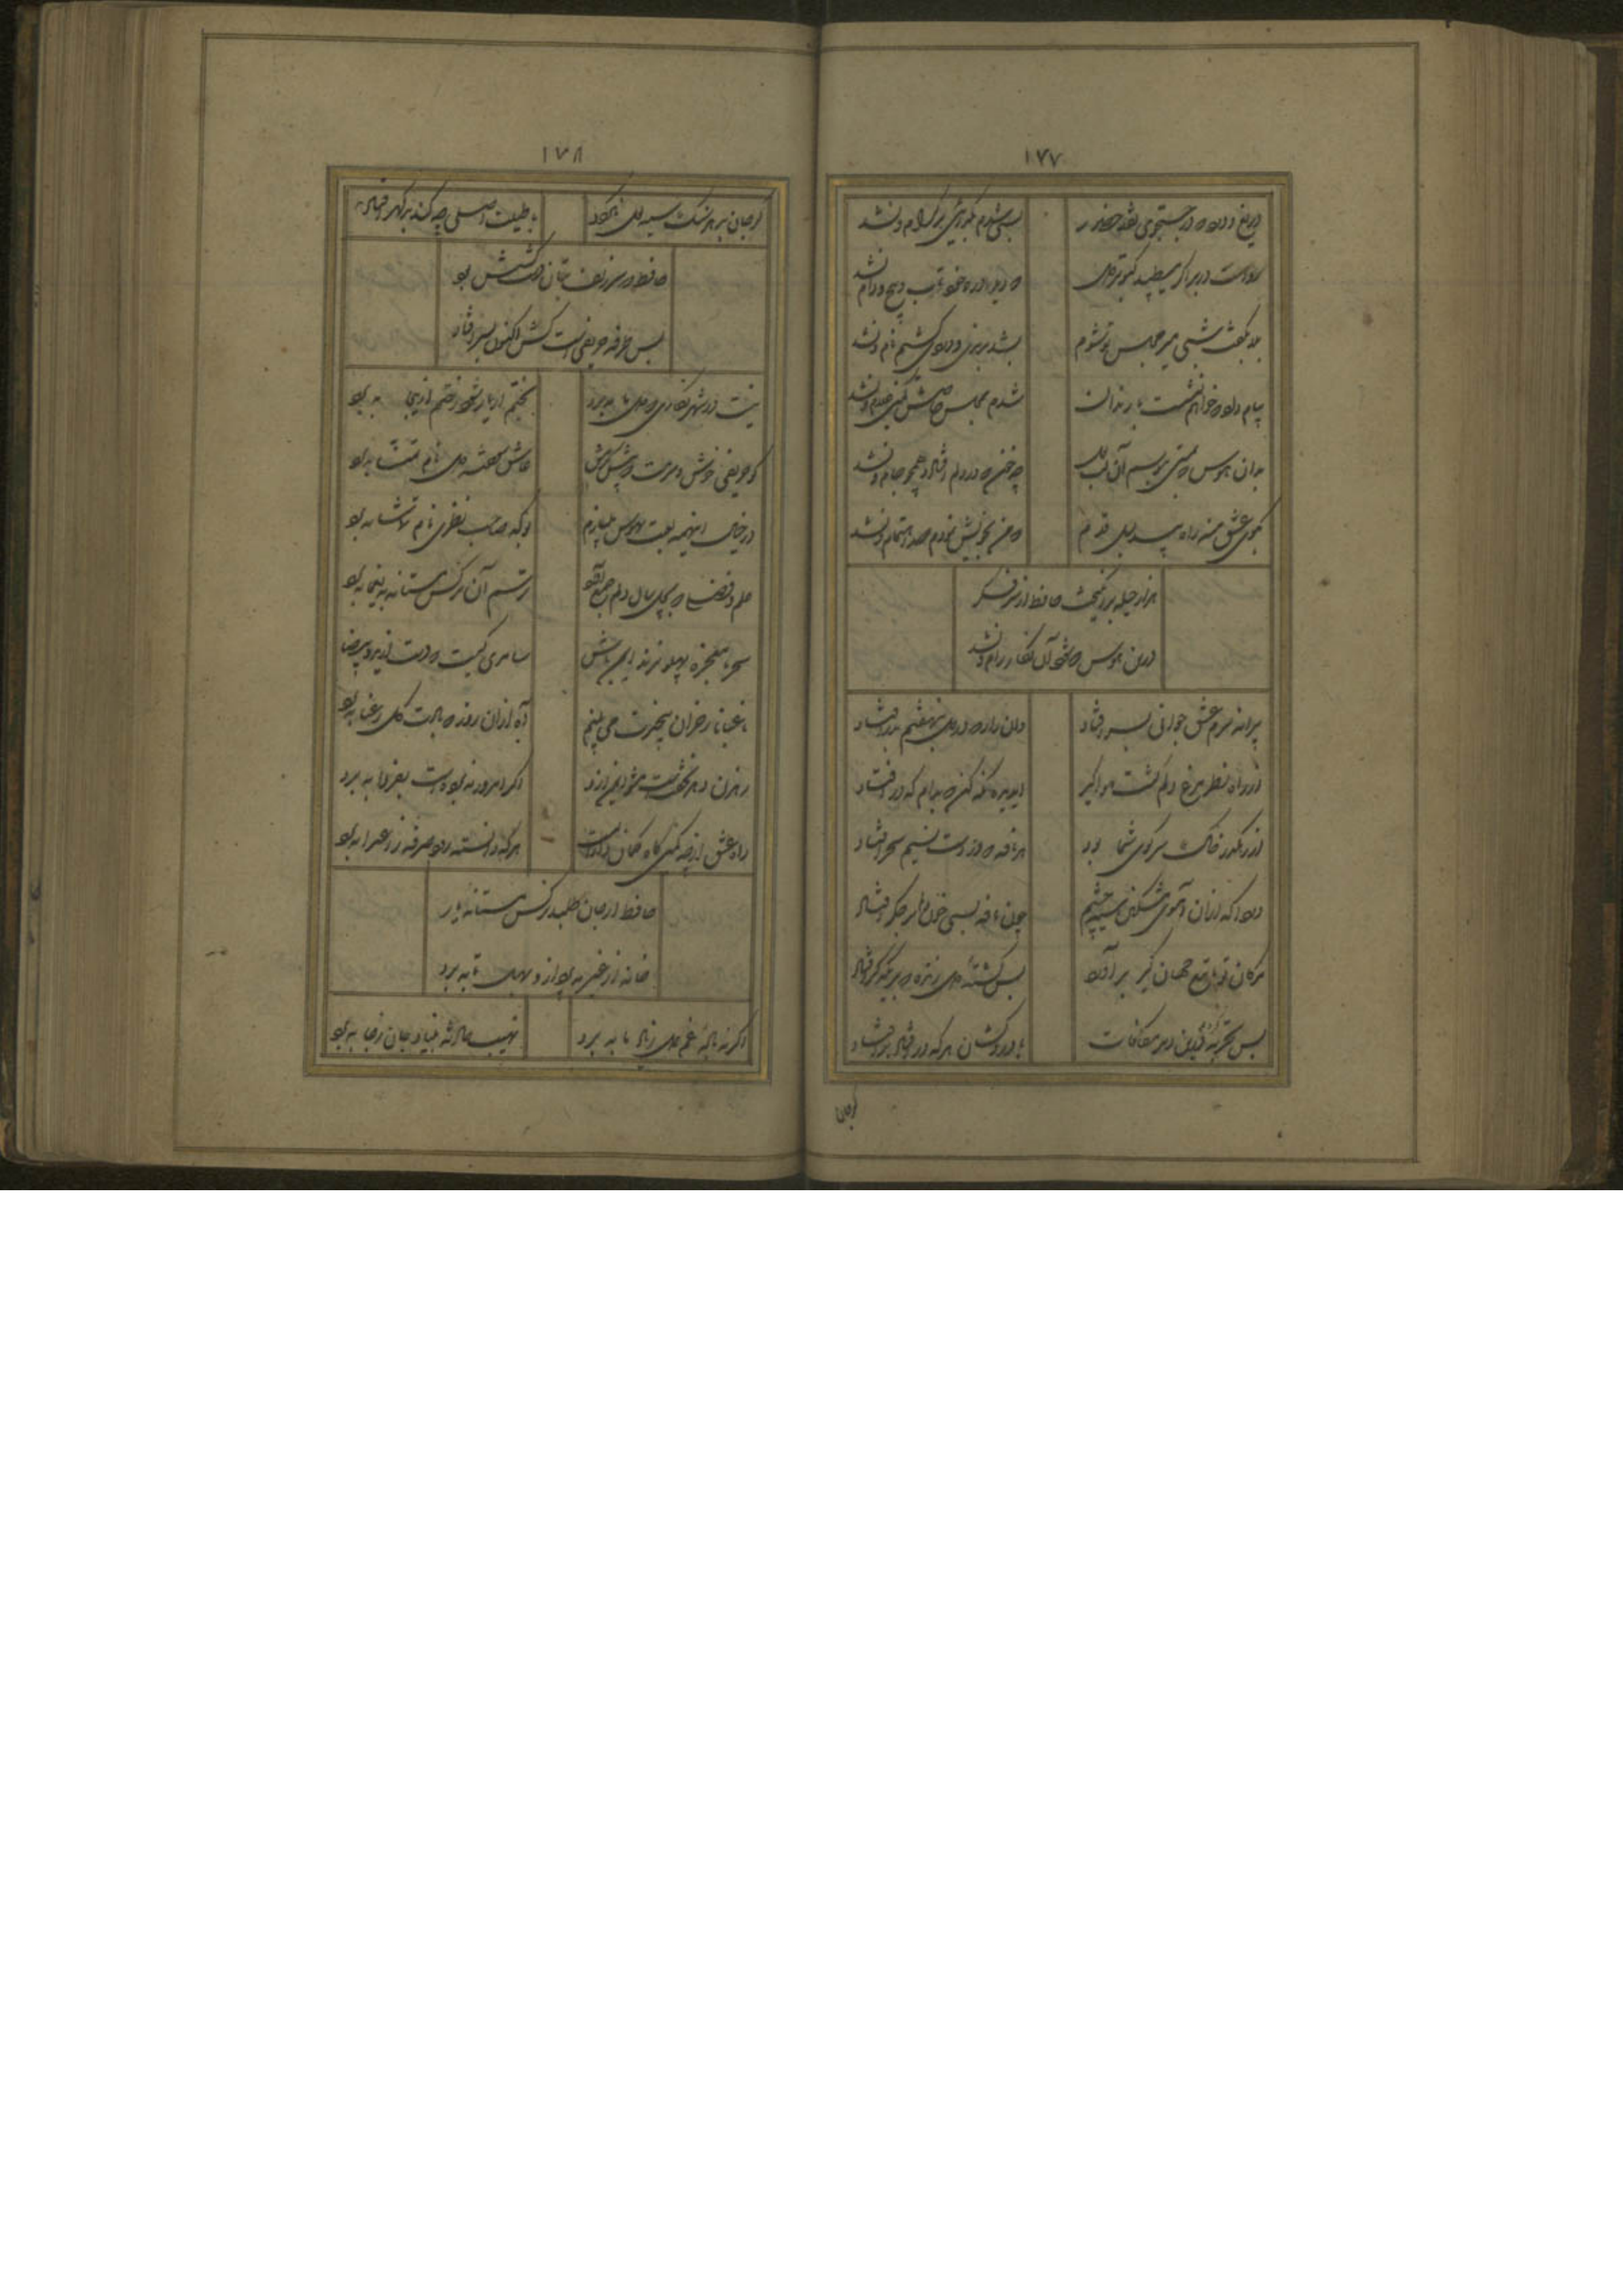 ۱۷۷
دریغ و درد که در جستجوی نقد حضور
بسی شدم بگدائی بر کرام و نشد
رواست در بر اگر میطپد کبوتر دل
که دید در ره خود تاب و پیچ دام و نشد
بگفت شبی میر مجلس تو شوم
شدم برغبت خویشش کمین غلام و نشد
پیام داد که خواهم نشست با رندان
بشد برندی و دردی کشیم نام و نشد
بدان هوس که بمستی ببوسم آن لب لعل
چه خون که در دلم افتاد همچو جام و نشد
بکوی عشق منه بی دلیل راه قدم
که من بخویش نمودم صد اهتمام و نشد
هزار حیله برانگیخت حافظ از سر فکر
درین هوس که شود آن نگار رام و نشد
پیرانه سرم عشق جوانی بسر افتاد
وان راز که در دل بنهفتم بدر افتاد
از راه نظر مرغ دلم گشت هواگیر
ای دیده نگه کن که بدام که در افتاد
از رهگذر خاک سر کوی شما بود
هر نافه که در دست نسیم سحر افتاد
دردا که از آن آهوی مشکین سیه چشم
چون نافه بسی خون دلم در جگر افتاد
مژگان تو تا تیغ جهان گیر برآورد
بس کشتهٔ دل زنده که بر یکدگر افتاد
بس تجربه کردیم درین دیر مکافات
با دردکشان هر که در افتاد بر افتاد
گر جان
۱۷۸
گر جان بدهد سنگ سیه لعل نگردد
با طینت اصلی چه کند بد گهر افتاد
حافظ که سر زلف بتان دستکشش بود
بس طرفه حریفیست کش اکنون بسر افتاد
نیست در شهر نگاری که دل ما ببرد
بختم ار یار شود رختم ازینجا ببرد
کو حریفی خوش و سرمست که پیش کرمش
عاشق سوخته دل نام تمنا ببرد
در خیال اینهمه لعبت بهوس میبازم
بو که صاحب نظری نام تماشا ببرد
علم و فضلی که بچل سال دلم جمع آورد
ترسم آن نرگس مستانه بیغما ببرد
سحر با معجزه پهلو نزند ایمن باش
سامری کیست که دست از ید بیضا ببرد
باغبانا ز خزان بیخبرت می بینم
آه از آن روز که بادت گل رعنا ببرد
رهزن دهر نخفتست مشو ایمن ازو
اگر امروز نبردست بفردا ببرد
راه عشق ارچه کمین گاه کمانداران است
هر که دانسته رود صرفه ز اعدا ببرد
حافظ ار جان طلبد نرگس مستانه یار
خانه از غیر بپرداز و بهل تا ببرد
اگر نه باده غم دل ز یاد ما ببرد
نهیب حادثه بنیاد جان ز جا ببرد